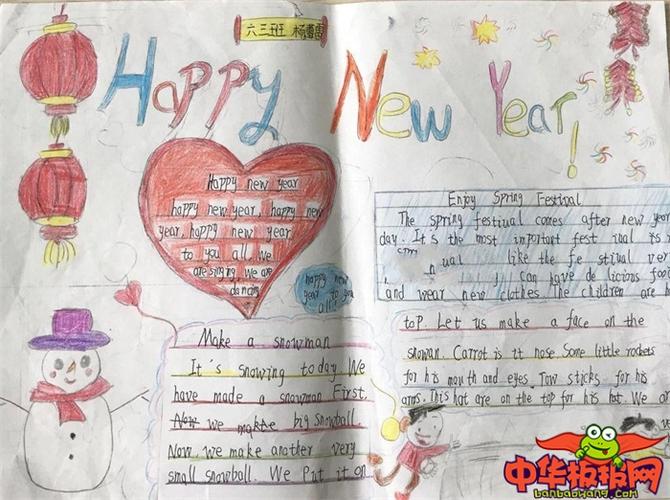 六三班 杨
Happy New Year!
Happy new year
happy new year, happy new
year, happy new year
to you all. We
are singing, We are
dancing
happy new
year to you
all!
Enjoy Spring Festival
The spring festival comes after new year
day. It's the most important fest ival
like the fe stival
can have de licious foo
and wear new clothes. The children are
Make a snowman
It's snowing today We
have made a snowman First,
Now we make big snowball.
Now, we make another very
small snowball. We Put it on
top Let us make a face on the
snowan. Carrot is it nose Some little rockets
for his mouth and eyes. Tow sticks for his
arms. This hat are on the top for his hat. We
中华板报网
banbaowang.com